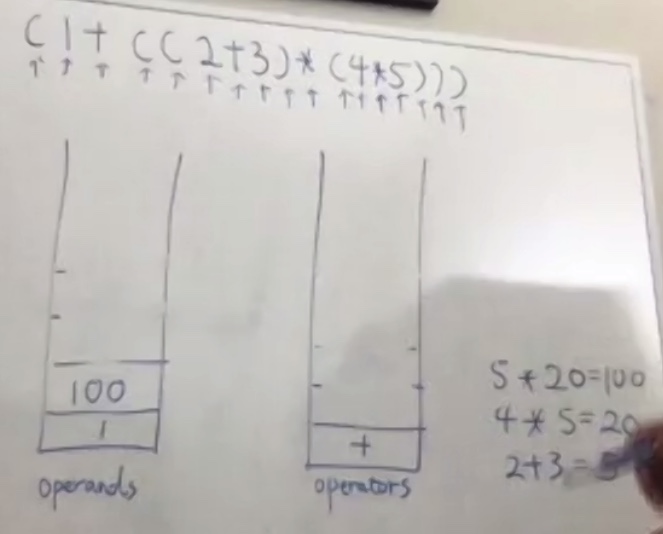 (1+((2+3)*(4*5)))
100
1
operands
+
operators
5*20=100
4*5=20
2+3=5